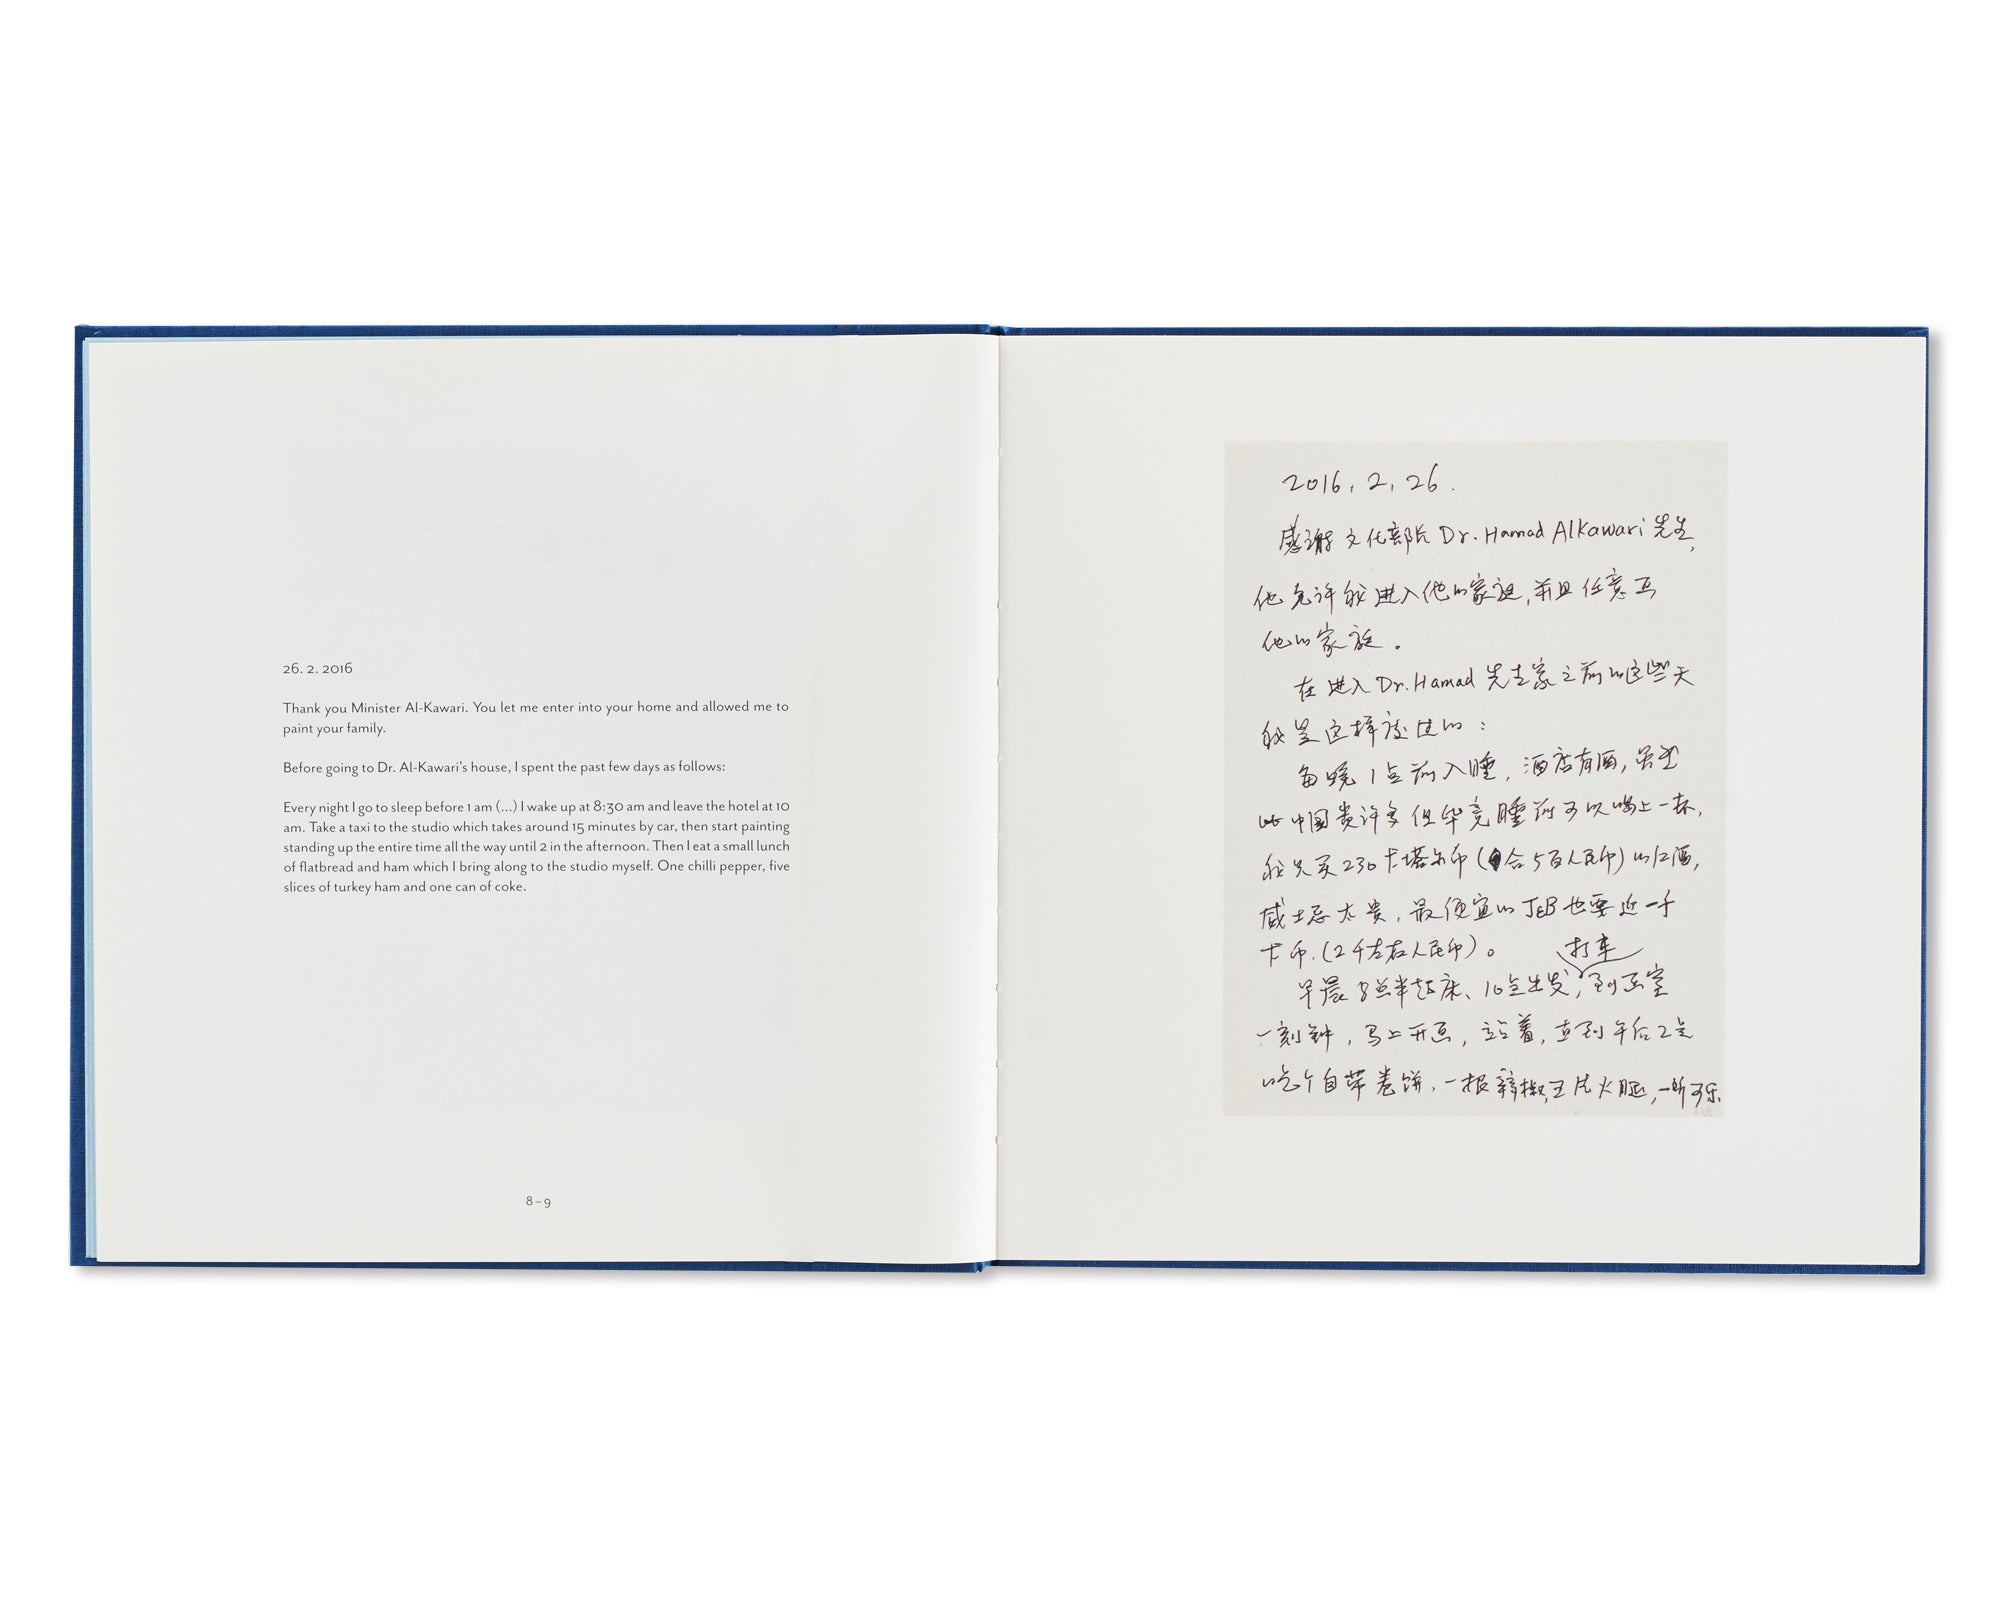 26. 2. 2016
Thank you Minister Al-Kawari. You let me enter into your home and allowed me to
paint your family.
Before going to Dr. Al-Kawari's house, I spent the past few days as follows:
Every night I go to sleep before 1 am (...) I wake up at 8:30 am and leave the hotel at 10
am. Take a taxi to the studio which takes around 15 minutes by car, then start painting
standing up the entire time all the way until 2 in the afternoon. Then I eat a small lunch
of flatbread and ham which I bring along to the studio myself. One chilli pepper, five
slices of turkey ham and one can of coke.
8–9
2016, 2, 26.
感谢文化部长Dr. Hamad Alkawari先生,
他允许我进入他的家庭,并且任意画
他的家庭。
在进入Dr. Hamad先生家之前的这些天
我是这样渡过的:
每晚1点前入睡,酒店有酒,虽然
比中国贵许多但毕竟睡前可以喝上一杯,
我只买230卡塔尔币(合5百人民币)的红酒,
威士忌太贵,最便宜的J&B也要近一千
卡币.(2千左右人民币)。打车
早晨8点半起床、10点出发,到画室
一刻钟,马上开画,站着,直到午后2点
吃个自带卷饼.一根辣椒,五片火腿,一听可乐